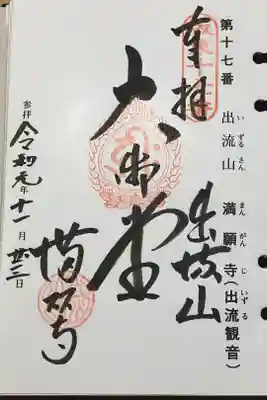 第十七番 出流山 満願寺(出流観音)
いずるさん まんがんじ いずる
奉拝
大御堂
出流山
満願寺
参拝 令和元年十一月廿三日